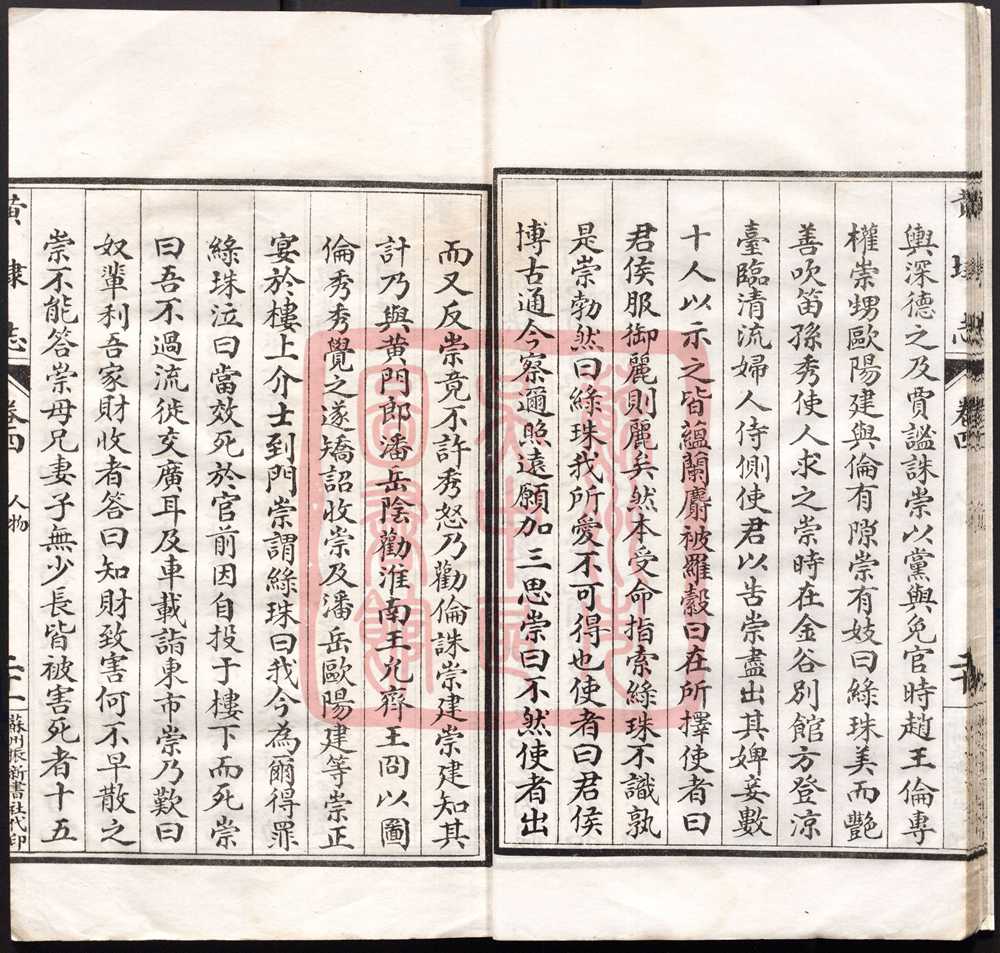 黄埭志
卷四
輿深德之及賈謐誅崇以黨與免官時趙王倫專
權崇甥歐陽建與倫有隙崇有妓曰綠珠美而艷
善吹笛孫秀使人求之崇時在金谷別館方登涼
臺臨清流婦人侍側使君以告崇盡出其婢妾數
十人以示之皆蘊蘭麝被羅縠曰在所擇使者曰
君侯服御麗則麗矣然本受命指索綠珠不識孰
是崇勃然曰綠珠我所愛不可得也使者曰君侯
博古通今察邇照遠願加三思崇曰不然使者出
而又反崇竟不許秀怒乃勸倫誅崇建崇建知其
計乃與黄門郎潘岳陰勸淮南王允齊王冏以圖
倫秀秀覺之遂矯詔收崇及潘岳歐陽建等崇正
宴於樓上介士到門崇謂綠珠曰我今為爾得罪
綠珠泣曰當效死於官前因自投于樓下而死崇
曰吾不過流徙交廣耳及車載詣東市崇乃歎曰
奴輩利吾家財收者答曰知財致害何不早散之
崇不能答崇母兄妻子無少長皆被害死者十五
黄埭志
卷四
人物
二十一
蘇州振新書社代印